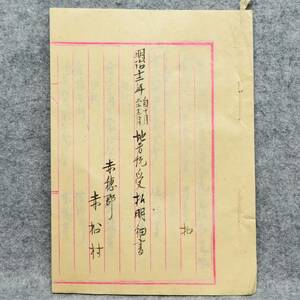 扣
明治十三年 自十月 至十二月 地方税受払明細書
赤穂郡
赤松村